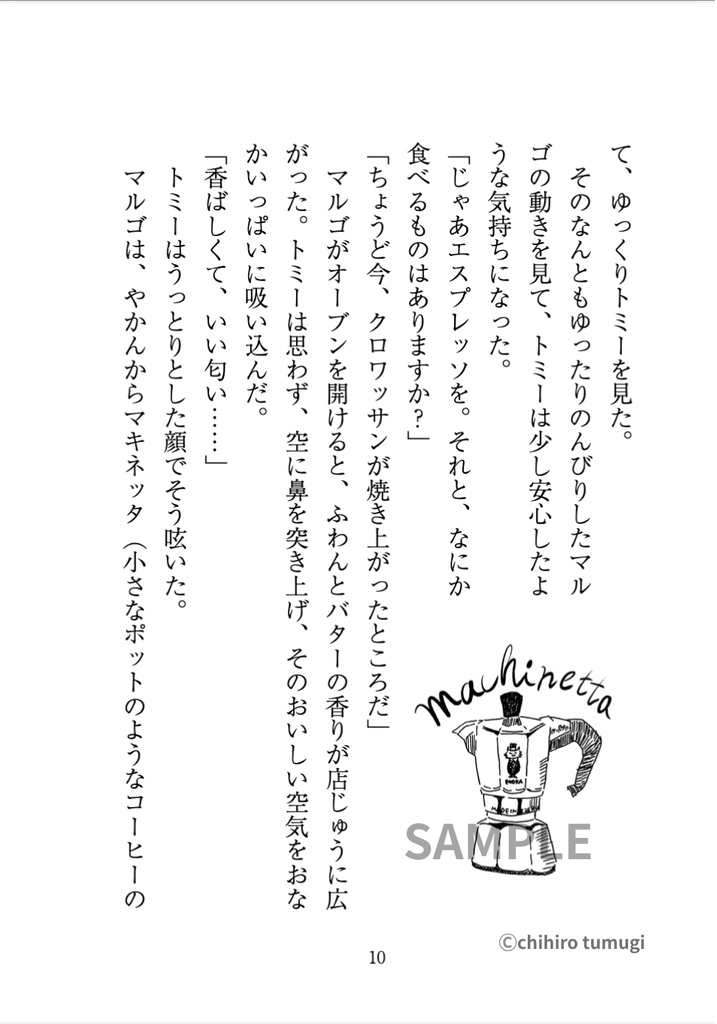 て、ゆっくりトミーを見た。
そのなんともゆったりのんびりしたマル
ゴの動きを見て、トミーは少し安心したよ
うな気持ちになった。
「じゃあエスプレッソを。それと、なにか
食べるものはありますか？」
「ちょうど今、クロワッサンが焼き上がったところだ」
マルゴがオーブンを開けると、ふわんとバターの香りが店じゅうに広
がった。トミーは思わず、空に鼻を突き上げ、そのおいしい空気をおな
かいっぱいに吸い込んだ。
「香ばしくて、いい匂い……」
トミーはうっとりとした顔でそう呟いた。
マルゴは、やかんからマキネッタ（小さなポットのようなコーヒーの
machinetta
MOKA
MADE IN
SAMPLE
©chihiro tumugi
10